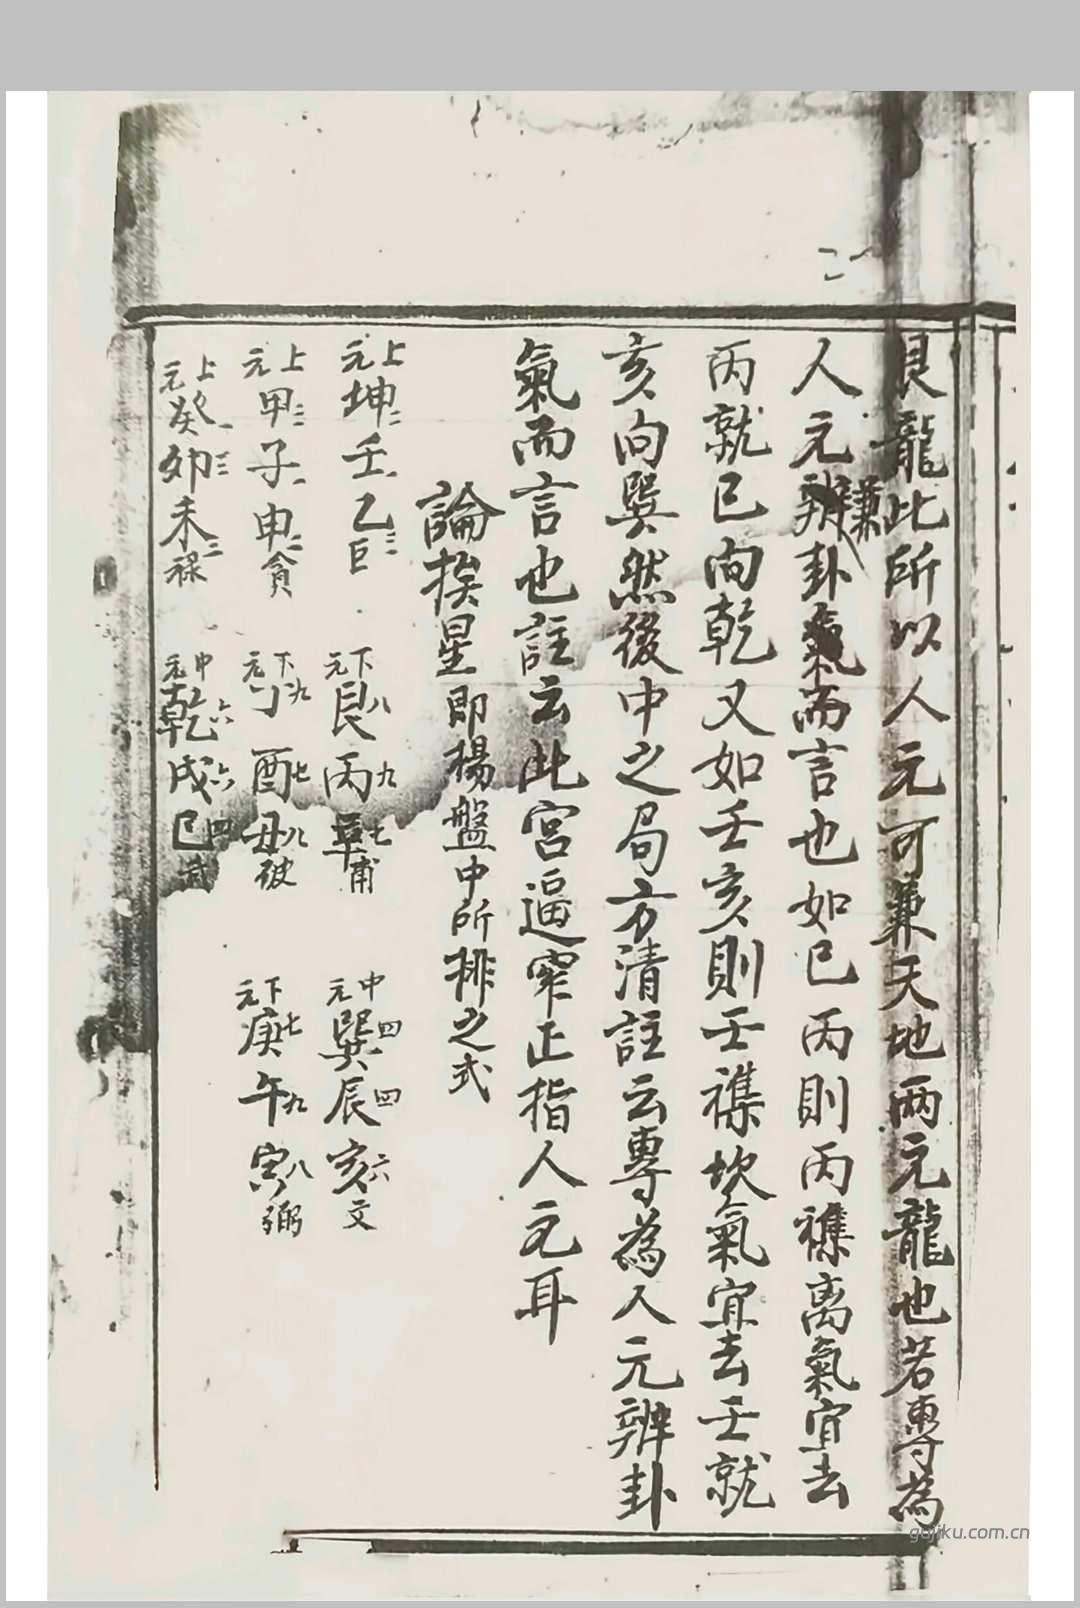 艮龍此所以人元可兼天地兩元龍也若專為
人元辨兼卦氣而言也如巳丙則丙襍离氣宜去
丙就巳向乾又如壬亥則壬襍坎氣宜去壬就
亥向巽然後中之局方清註云專為人元辨卦
氣而言也註云此宮逼窄正指人元耳
論挨星即楊盤中所排之式
上元坤二壬一乙三巨 下元艮八丙九辛七甫 中元巽四辰四亥六文
上元甲三子一申二貪 下元丁九酉七丑八彼 下元庚七午九寅八弼
上元癸一卯三未二祿 中元乾六戌六巳四武
gujiku.com.cn